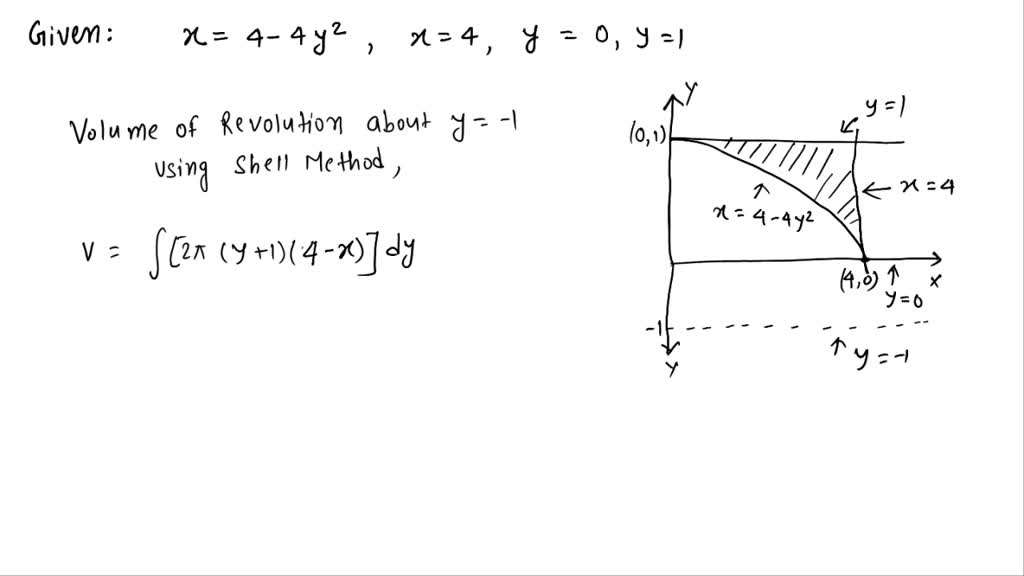 Given: x = 4 - 4y², x = 4, y = 0, y = 1
Volume of Revolution about y = -1
using Shell Method,
V = ∫[2π (y+1)(4-x)] dy
y
y = 1
(0,1)
x = 4
x = 4 - 4y²
(4,0)
x
y = 0
-1
y = -1
y